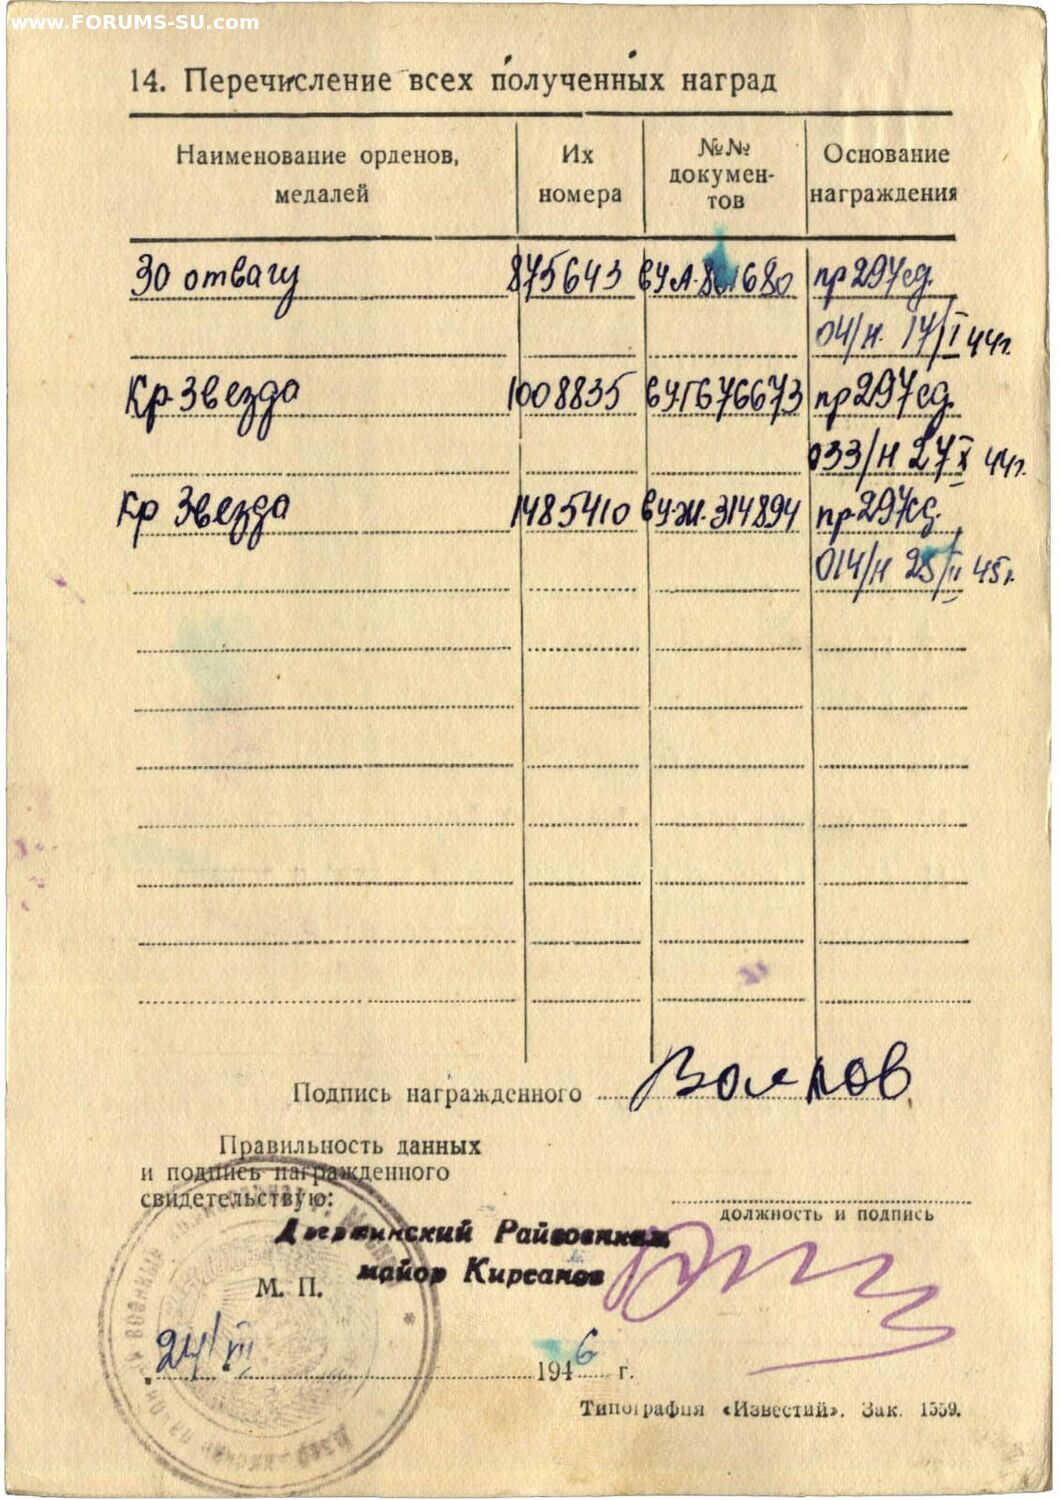 www.FORUMS-SU.com
14. Перечисление всех полученных наград
Наименование орденов, медалей
Их номера
№№ докумен- тов
Основание награждения
Зо отвагу 875643 вуА. 861680 пр 297сд.
04/н. 17/I 44г.
Кр Звезда 1008835 вуГ676673 пр 297сд.
033/н 27/X 44г.
Кр Звезда 1485410 вуЖ.314894 пр 297сд.
014/н 25/II 45г.
Подпись награжденного
Правильность данных
и подпись награжденного
свидетельствую:
должность и подпись
Дзержинский Райвоенком
майор Кирсанов
М. П.
24/VII 1946 г.
Типография «Известий». Зак. 1559.